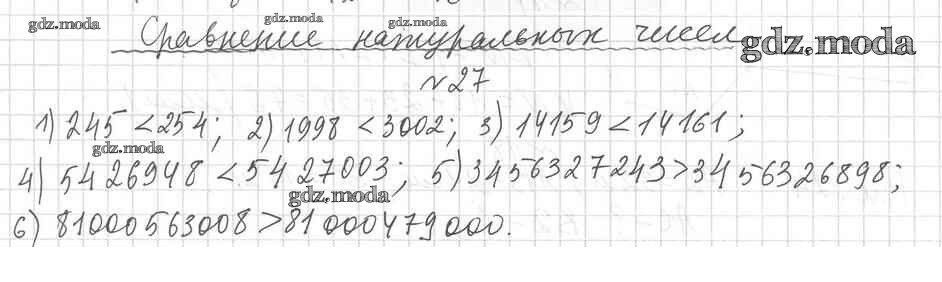 gdz.moda gdz.moda gdz.moda
Сравнение натуральных чисел.
gdz.moda
№27
1) 245 < 254; 2) 1998 < 3002; 3) 14159 < 14161;
gdz.moda
4) 5426948 < 5427003; 5) 3456327243 > 3456326898;
gdz.moda
6) 81000563008 > 81000479000.